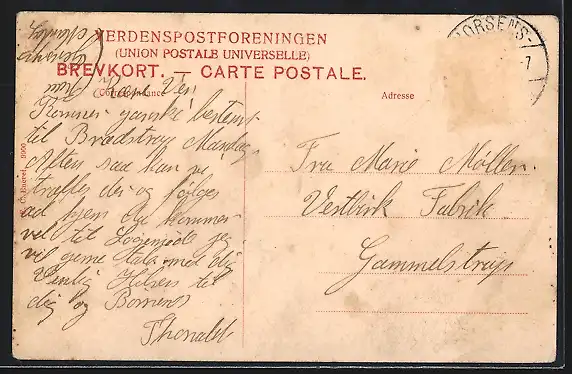 VERDENSPOSTFORENINGEN
(UNION POSTALE UNIVERSELLE)
BREVKORT. — CARTE POSTALE.
Correspondance
Adresse
HORSENS
7
Kære Ven!
Kommer ganske bestemt
til Brædstrup Mandag
Aften saa kan vi
træffes der og følges
ad hjem du kommer
vel til Logemøde jeg
vil gerne tale med dig
Venlig Hilsen til
dig og Børnene
Thorvald
Fru Marie Møller.
Vestbirk Fabrik
Gammelstrup